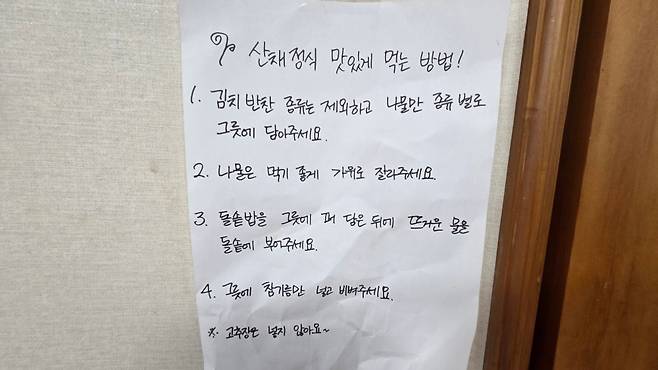 산채정식 맛있게 먹는 방법!
1. 김치 반찬 종류는 제외하고 나물만 종류 별로
그릇에 담아주세요.
2. 나물은 먹기 좋게 가위로 잘라주세요.
3. 돌솥밥을 그릇에 퍼 담은 뒤에 뜨거운 물을
돌솥에 부어주세요.
4. 그릇에 참기름만 넣고 비벼주세요.
※ 고추장은 넣지 않아요~